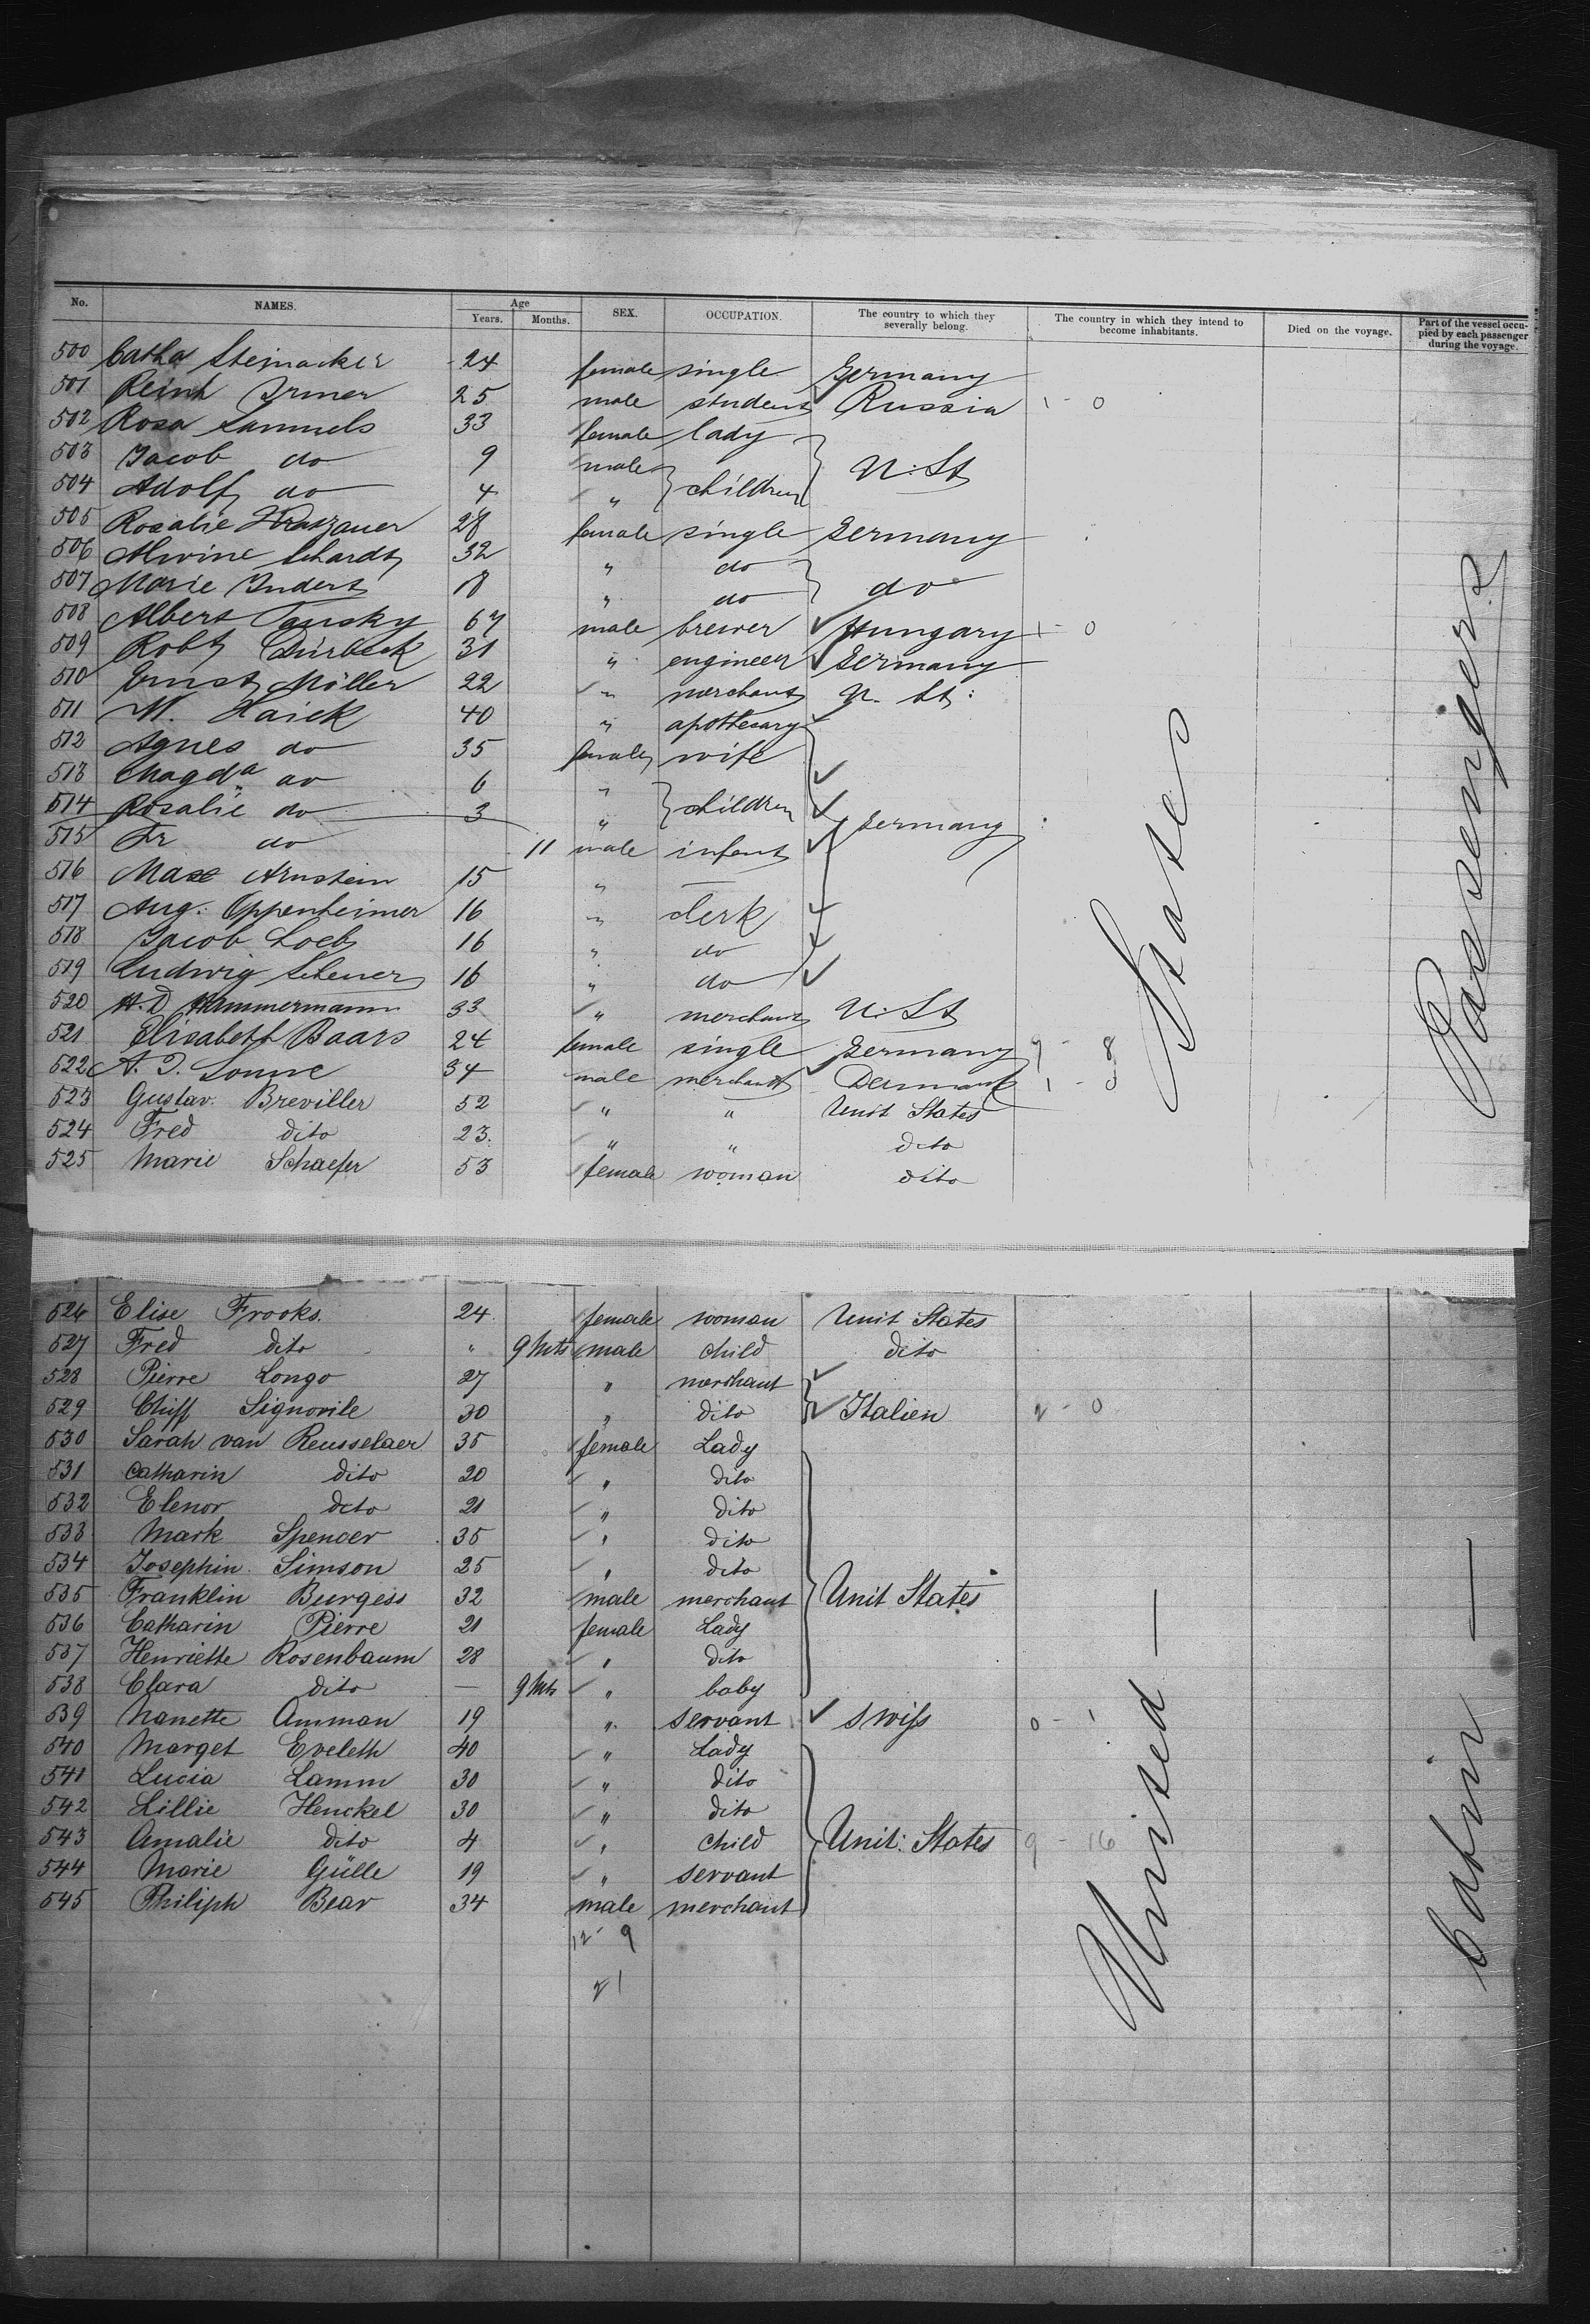 No. NAMES. Age Years. Months. SEX. OCCUPATION. The country to which they severally belong. The country in which they intend to become inhabitants. Died on the voyage. Part of the vessel occupied by each passenger during the voyage.
500 Catha Steinacker 24 female single Germany
501 Reinh Irmer 25 male student Russia 1 - 0
502 Rosa Samuels 33 female lady
503 Jacob do 9 male children U. St
504 Adolf do 4 "
505 Rosalie 28 female single Germany
506 Alwine Schardt 32 " do
507 Marie Indert 18 " do do
508 Albert Tausky 67 male brewer Hungary 1 - 0
509 Robt Dürbeck 31 " engineer Germany
510 Ernst Möller 22 " merchant U. St.
511 M. Haick 40 " apothecary
512 Agnes do 35 female wife
513 Magda do 6 " children
514 Rosalie do 3 " Germany
515 Fr do 11 male infant
516 Max Arnstein 15 " —
517 Aug. Oppenheimer 16 " clerk
518 Jacob Loeb 16 " do
519 Ludwig Scheuer 16 " do
520 H. D 33 " merchant U. St
521 Elisabeth Baars 24 female single Germany 9 - 8
522 A. J. Sonne 34 male merchant Denmark 1 - 0
523 Gustav. Breviller 52 " " Unit States
524 Fred dito 23. " " dito
525 Marie Schaefer 53 female woman dito
States
Passengers
526 Elise Frooks. 24 female woman Unit States
527 Fred dito " 9 Mts male child dito
528 Pierre Longo 27 " merchant
529 Chiff Signorile 30 " dito Italien 2 - 0
530 Sarah van Reusselaer 35 female Lady
531 Catharin dito 20 " dito
532 Elenor dito 21 " dito
533 Mark Spencer 35 " dito
534 Josephin Simson 25 " dito
535 Franklin Burgess 32 male merchant Unit States
536 Catharin Pierre 21 female Lady
537 Henriette Rosenbaum 28 " dito
538 Clara dito — 9 Mts " baby
539 Nanette Amman 19 " servant Swiss 0 - 1
540 Marget Eveleth 40 " Lady
541 Lucia Lamm 30 " dito
542 Lillie Henckel 30 " dito
543 Amalie dito 4 " child Unit: States 9 - 16
544 Marie Gülle 19 " servant
545 Philiph Bear 34 male merchant
12 - 9
21
United —
Cabin —